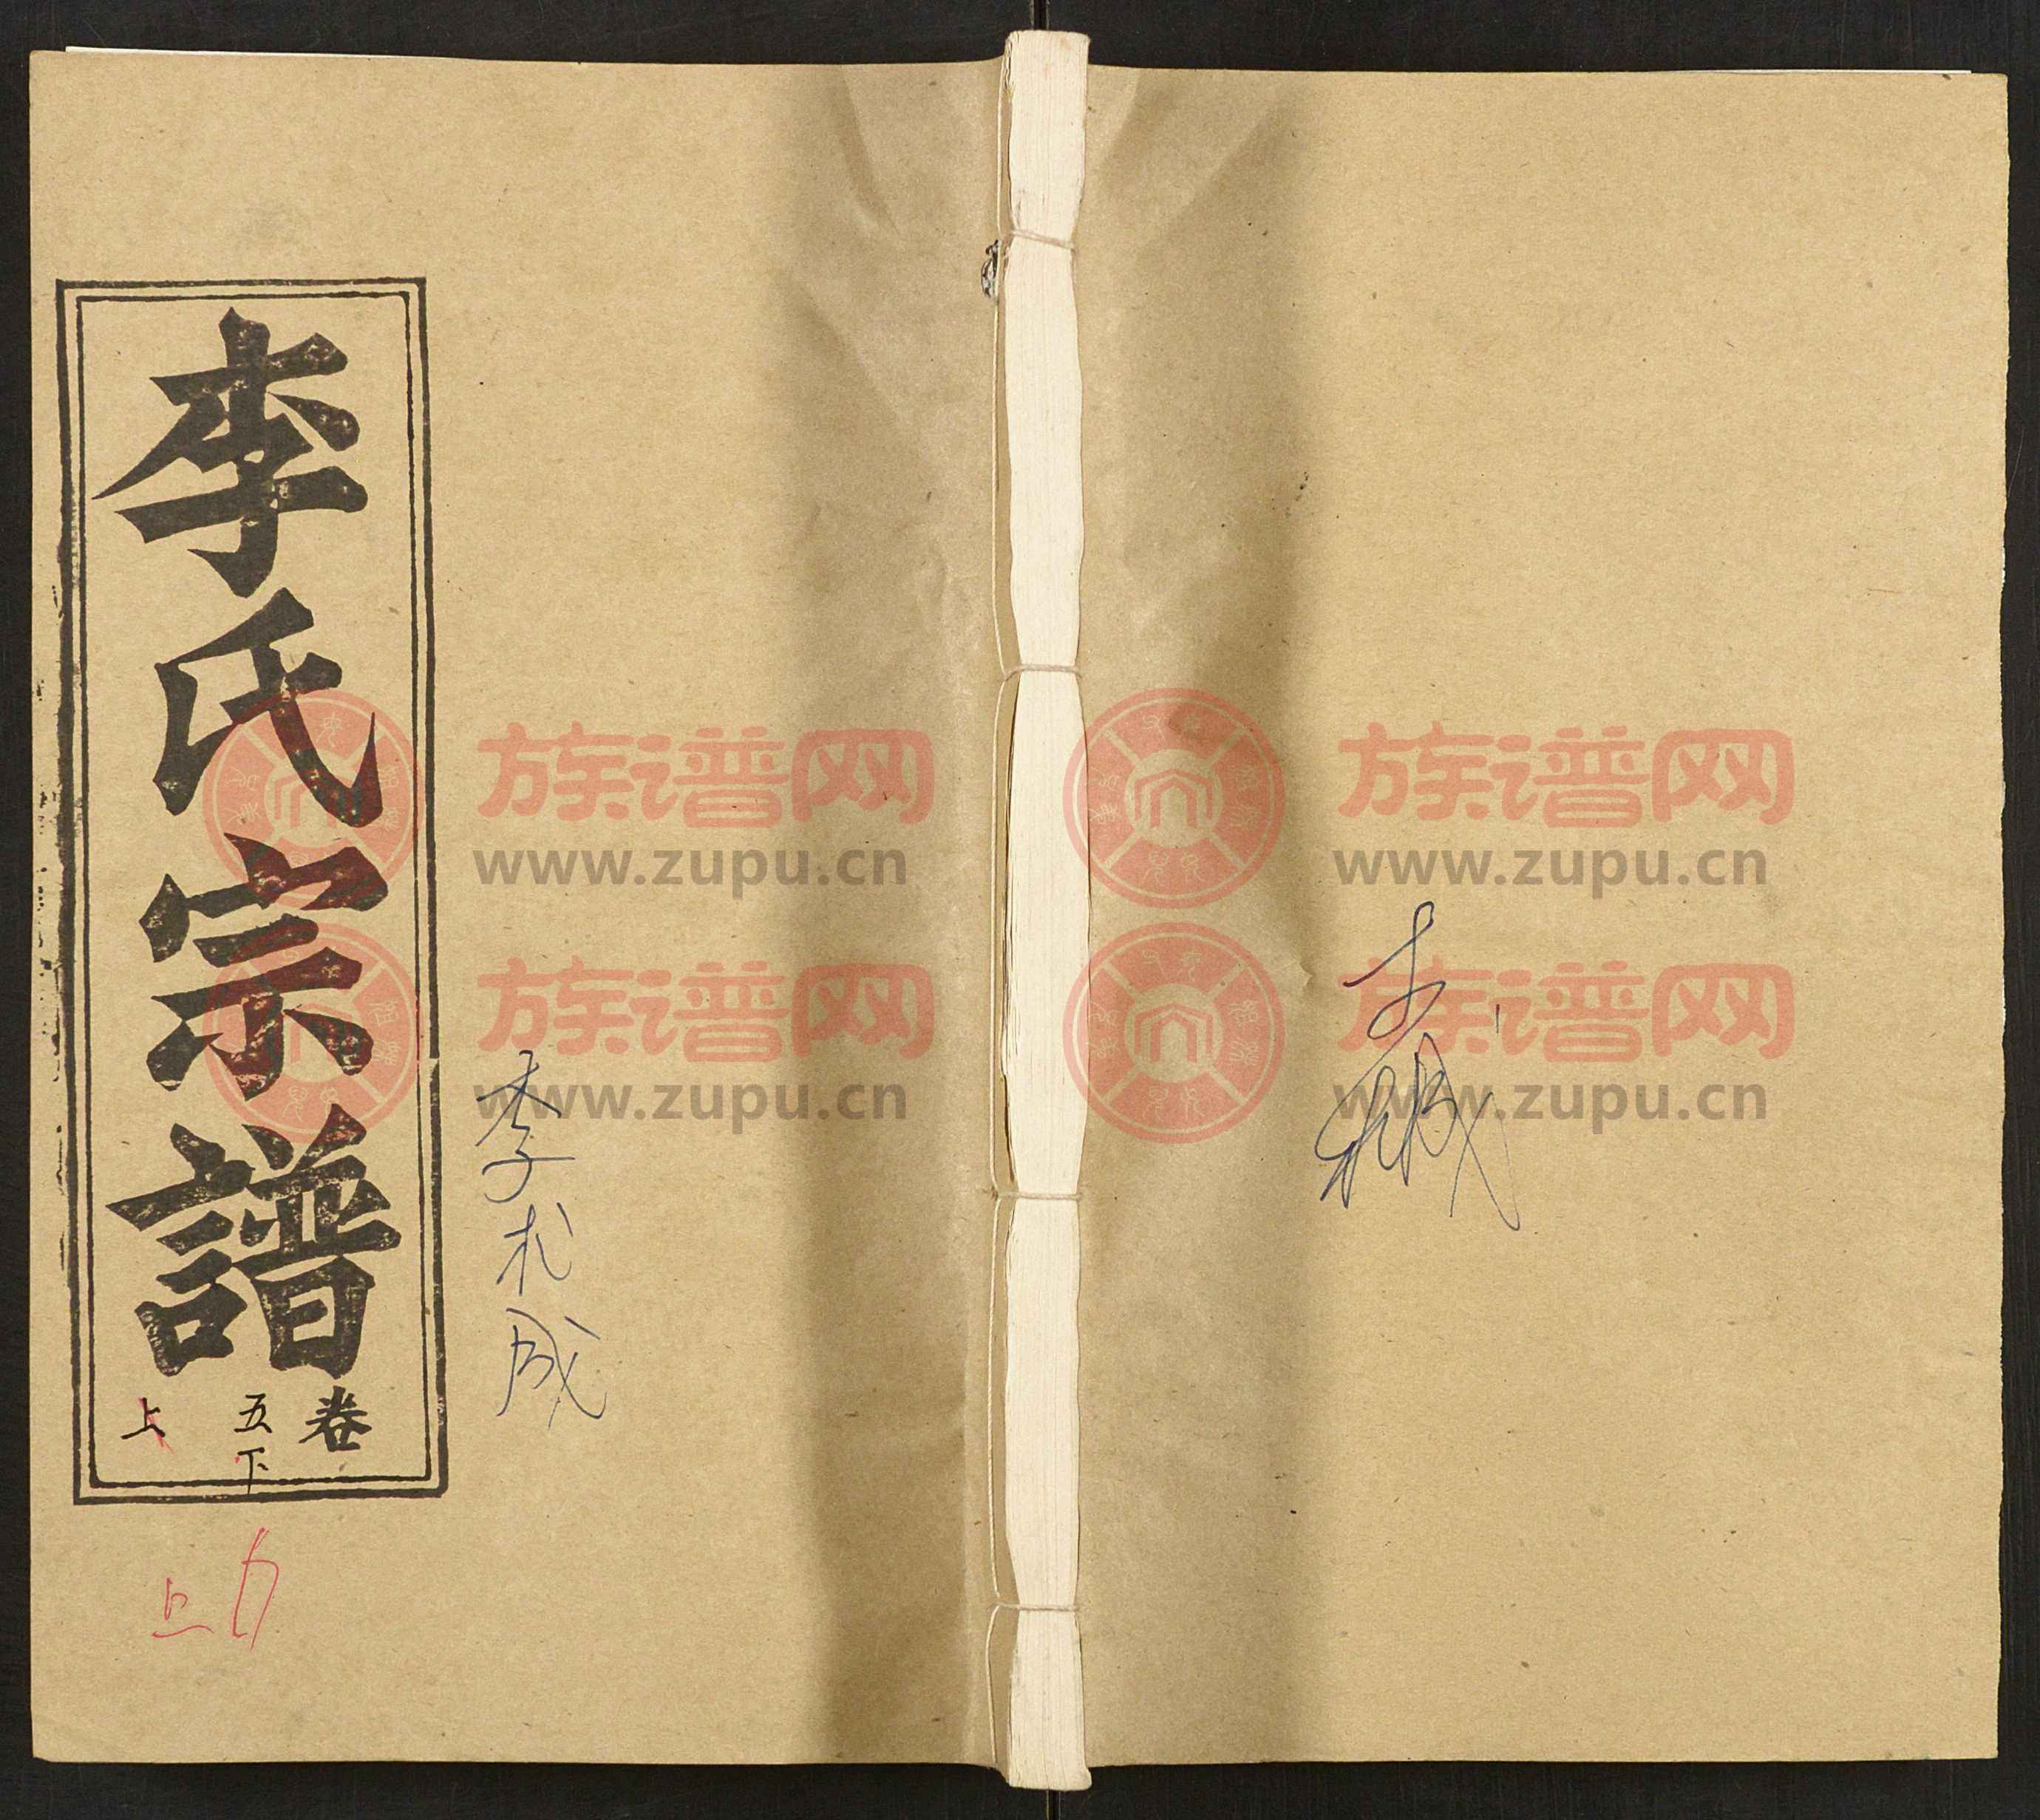 李氏宗譜
卷
五下
上
李成
族谱网
www.zupu.cn
族谱网
www.zupu.cn
族谱网
www.zupu.cn
族谱网
www.zupu.cn
上